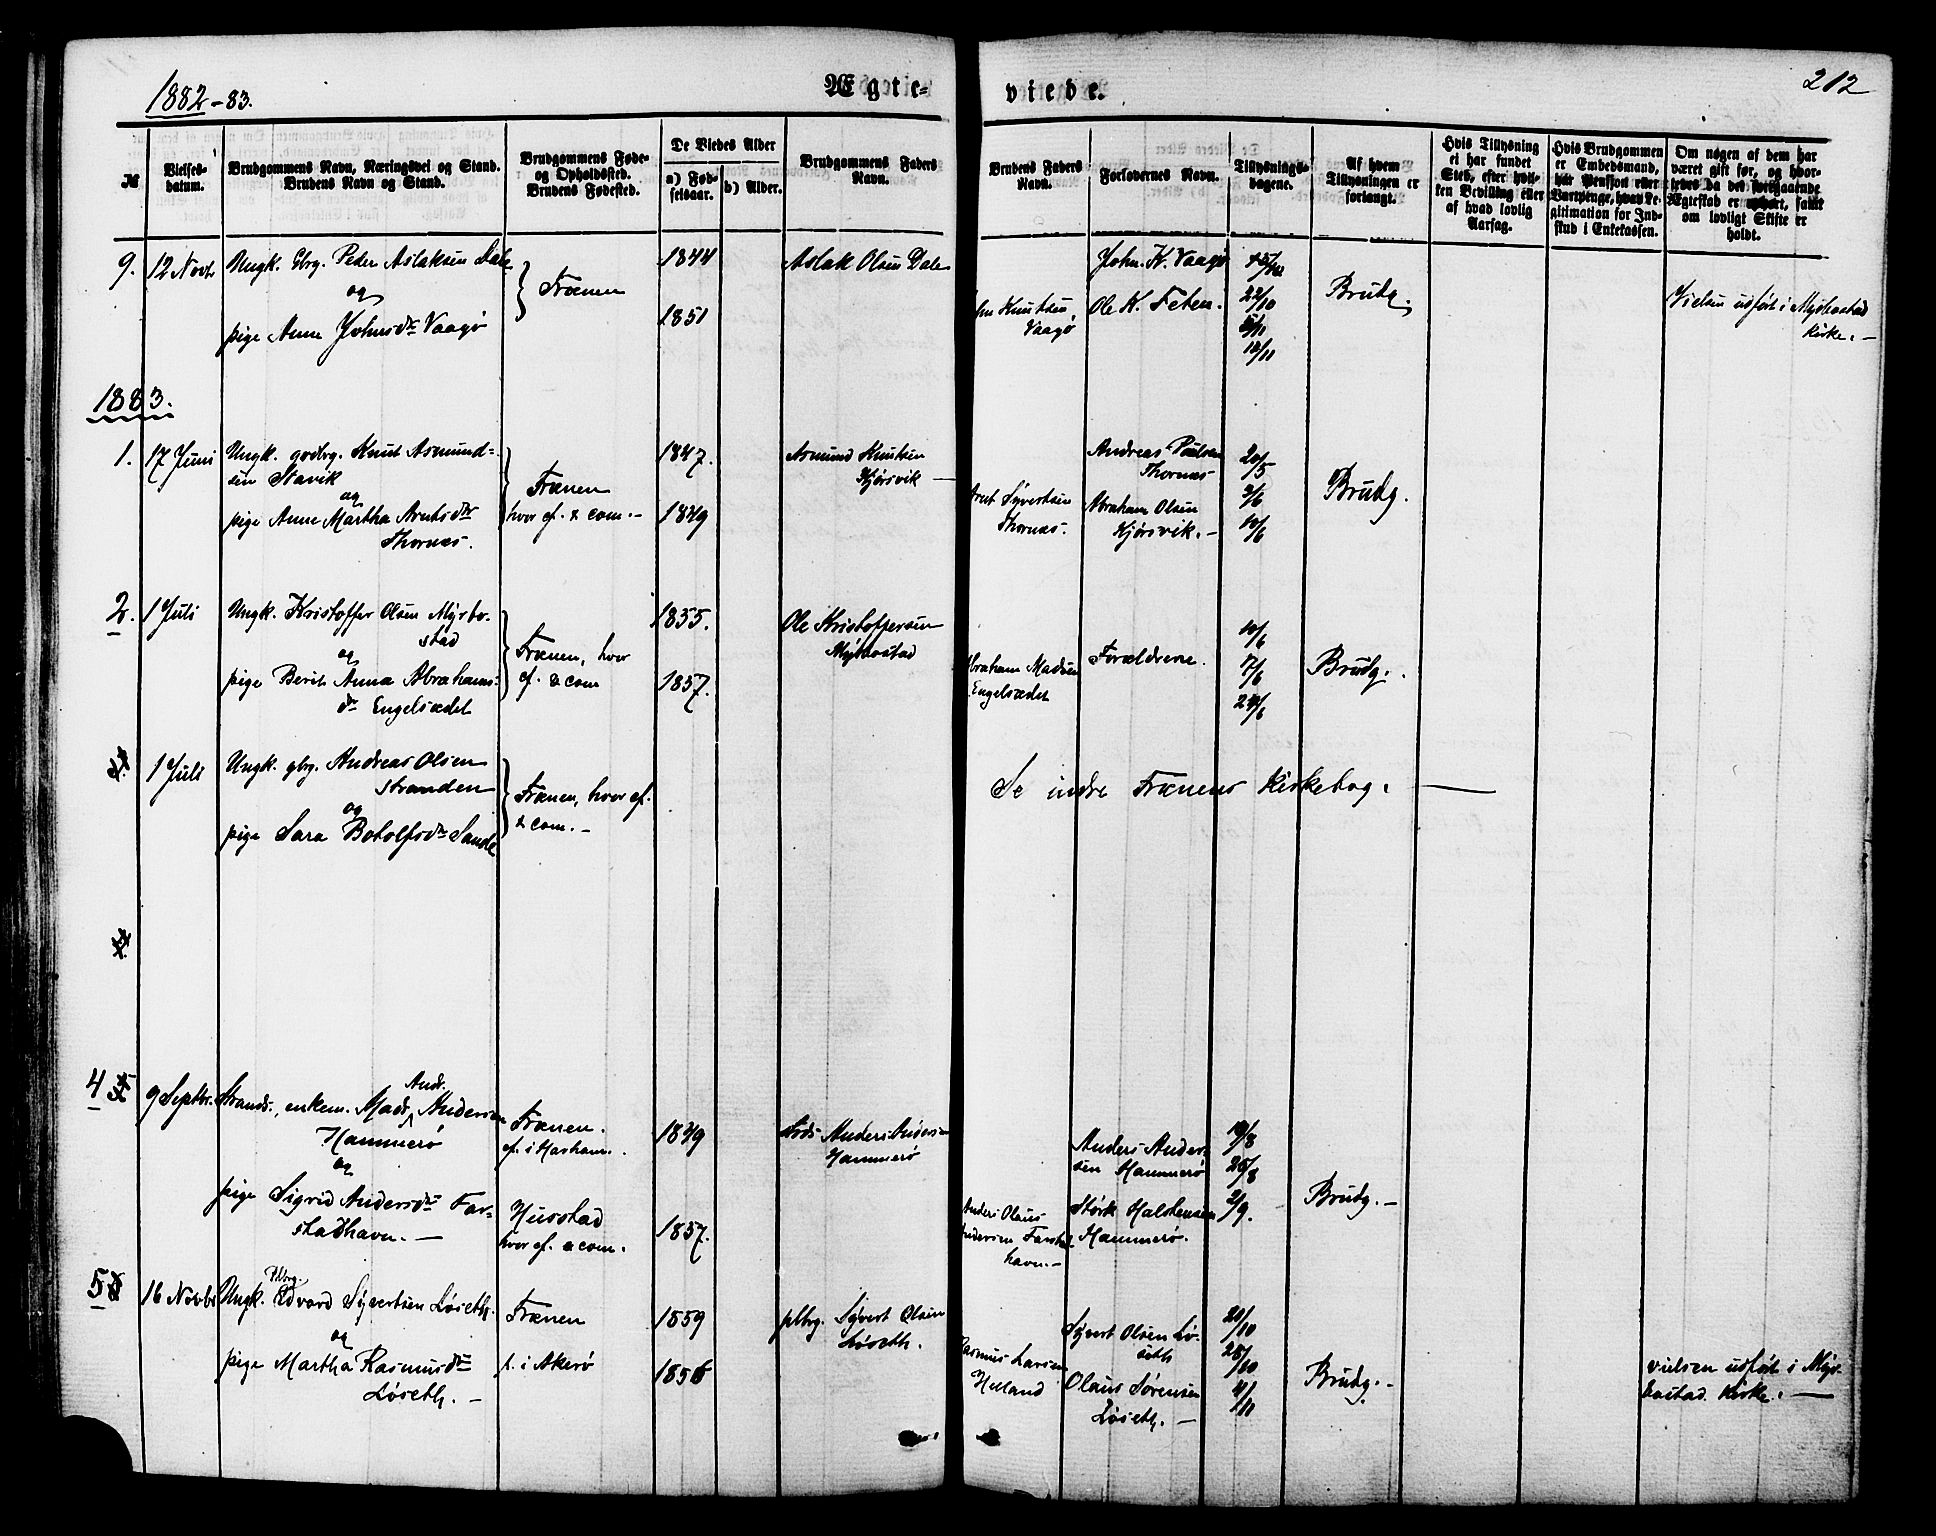 1882-83.
Ægte-
viede.
212
№
Vielses-
datum.
Brudgommens Navn, Næringsvei og Stand.
Brudens Navn og Stand.
Brudgommens Føde-
og Opholdssted.
Brudens Fødested.
De Viedes Alder
a) Fød-
selsaar.
b) Alder.
Brudgommens Faders
Navn.
Brudens Faders
Navn.
Forlovernes Navn.
Tillysnings-
dagene.
Af hvem
Tillysningen er
forlangt.
Hvis Tillysning
ei har fundet
Sted, efter hvil-
ken Bevilling eller
af hvad lovlig
Aarsag.
Hvis Brudgommen
er Embedsmand,
har Pension eller
Vartpenge, hvad Le-
gitimation for Ind-
skud i Enkekassen.
Om nogen af dem har
været gift før, og hvor-
ledes da det foregaaende
Ægteskab er ophørt, samt
om lovligt Skifte er
holdt.
9.
12 Novbr
Ungk. Gbrg. Peder Aslaksen Dale
og
pige Anne Johnsdtr Vaagø
Frænen
1844
1851
Aslak Olsen Dale
Knutsen
Vaagø
John. K. Vaagø
Ole K. Feten.
22/10
5/11
12/11
Brudg.
Vielsen udført i Myrbostad
Kirke. —
1883.
1.
17 Juni
Ungk. gvdbrg. Knut Asmund-
sen Stavik
og
pige Anne Martha Arntsdtr
Thornæs.
Frænen
hvor cf. & com. -
1847.
1849
Asmund Knutsen
Hjørsvik —
Arnt Syvertsen
Thornæs.
Andreas Paulsen
Thornæs
Abraham Olsen
Hjørsvik. -
20/5
3/6
10/6
Brudg.
2.
1 Juli
Ungk. Kristoffer Olsen Myrbo-
stad
og
pige Berit Anna Abrahams-
dtr Engelsædet
Frænen, hvor
cf. & com
1855.
1857.
Ole Kristoffersen
Myrbostad
Abraham Madsen
Engelsædet
Forældrene.
10/6
7/6
24/6
Brudg.
1 Juli
Ungk. gbrg. Andreas Olsen
Stranden
og
pige Sara Botolfsdtr Sande
Frænen, hvor cf.
& com. -
Se indre Frænens Kirkebog. —
4
9 Septbr.
Strands., enkem. Mads Andr. Andersen
Hammerø
og
pige Sigrid Andersdtr Far-
stadhavn. —
Frænen.
cf. i Harham.
Hustad
hvor cf. & com.
1849
1857.
Anders Andersen
Hammerø
Anders Olaus
Andersen Farstad-
havn. -
Anders Ander-
sen Hammerø
Størk Halstensen
Hammerø.
19/8
26/8
2/9.
Brudg. -
5
16 Novbr
Ungk. Plbrg. Edvard Syvertsen Løseth.
og
pige Martha Rasmusdtr
Løseth. -
Frænen
f. i Akerø
1859
1856
plbrg. Syvert Olsen
Løseth.
Rasmus Larsen
Helland
Syvert Olsen Lø-
seth
Olaus Sørensen
Løseth. -
21/10
28/10
4/11
Brudg. -
vielsen udført i Myr-
bostad Kirke. —